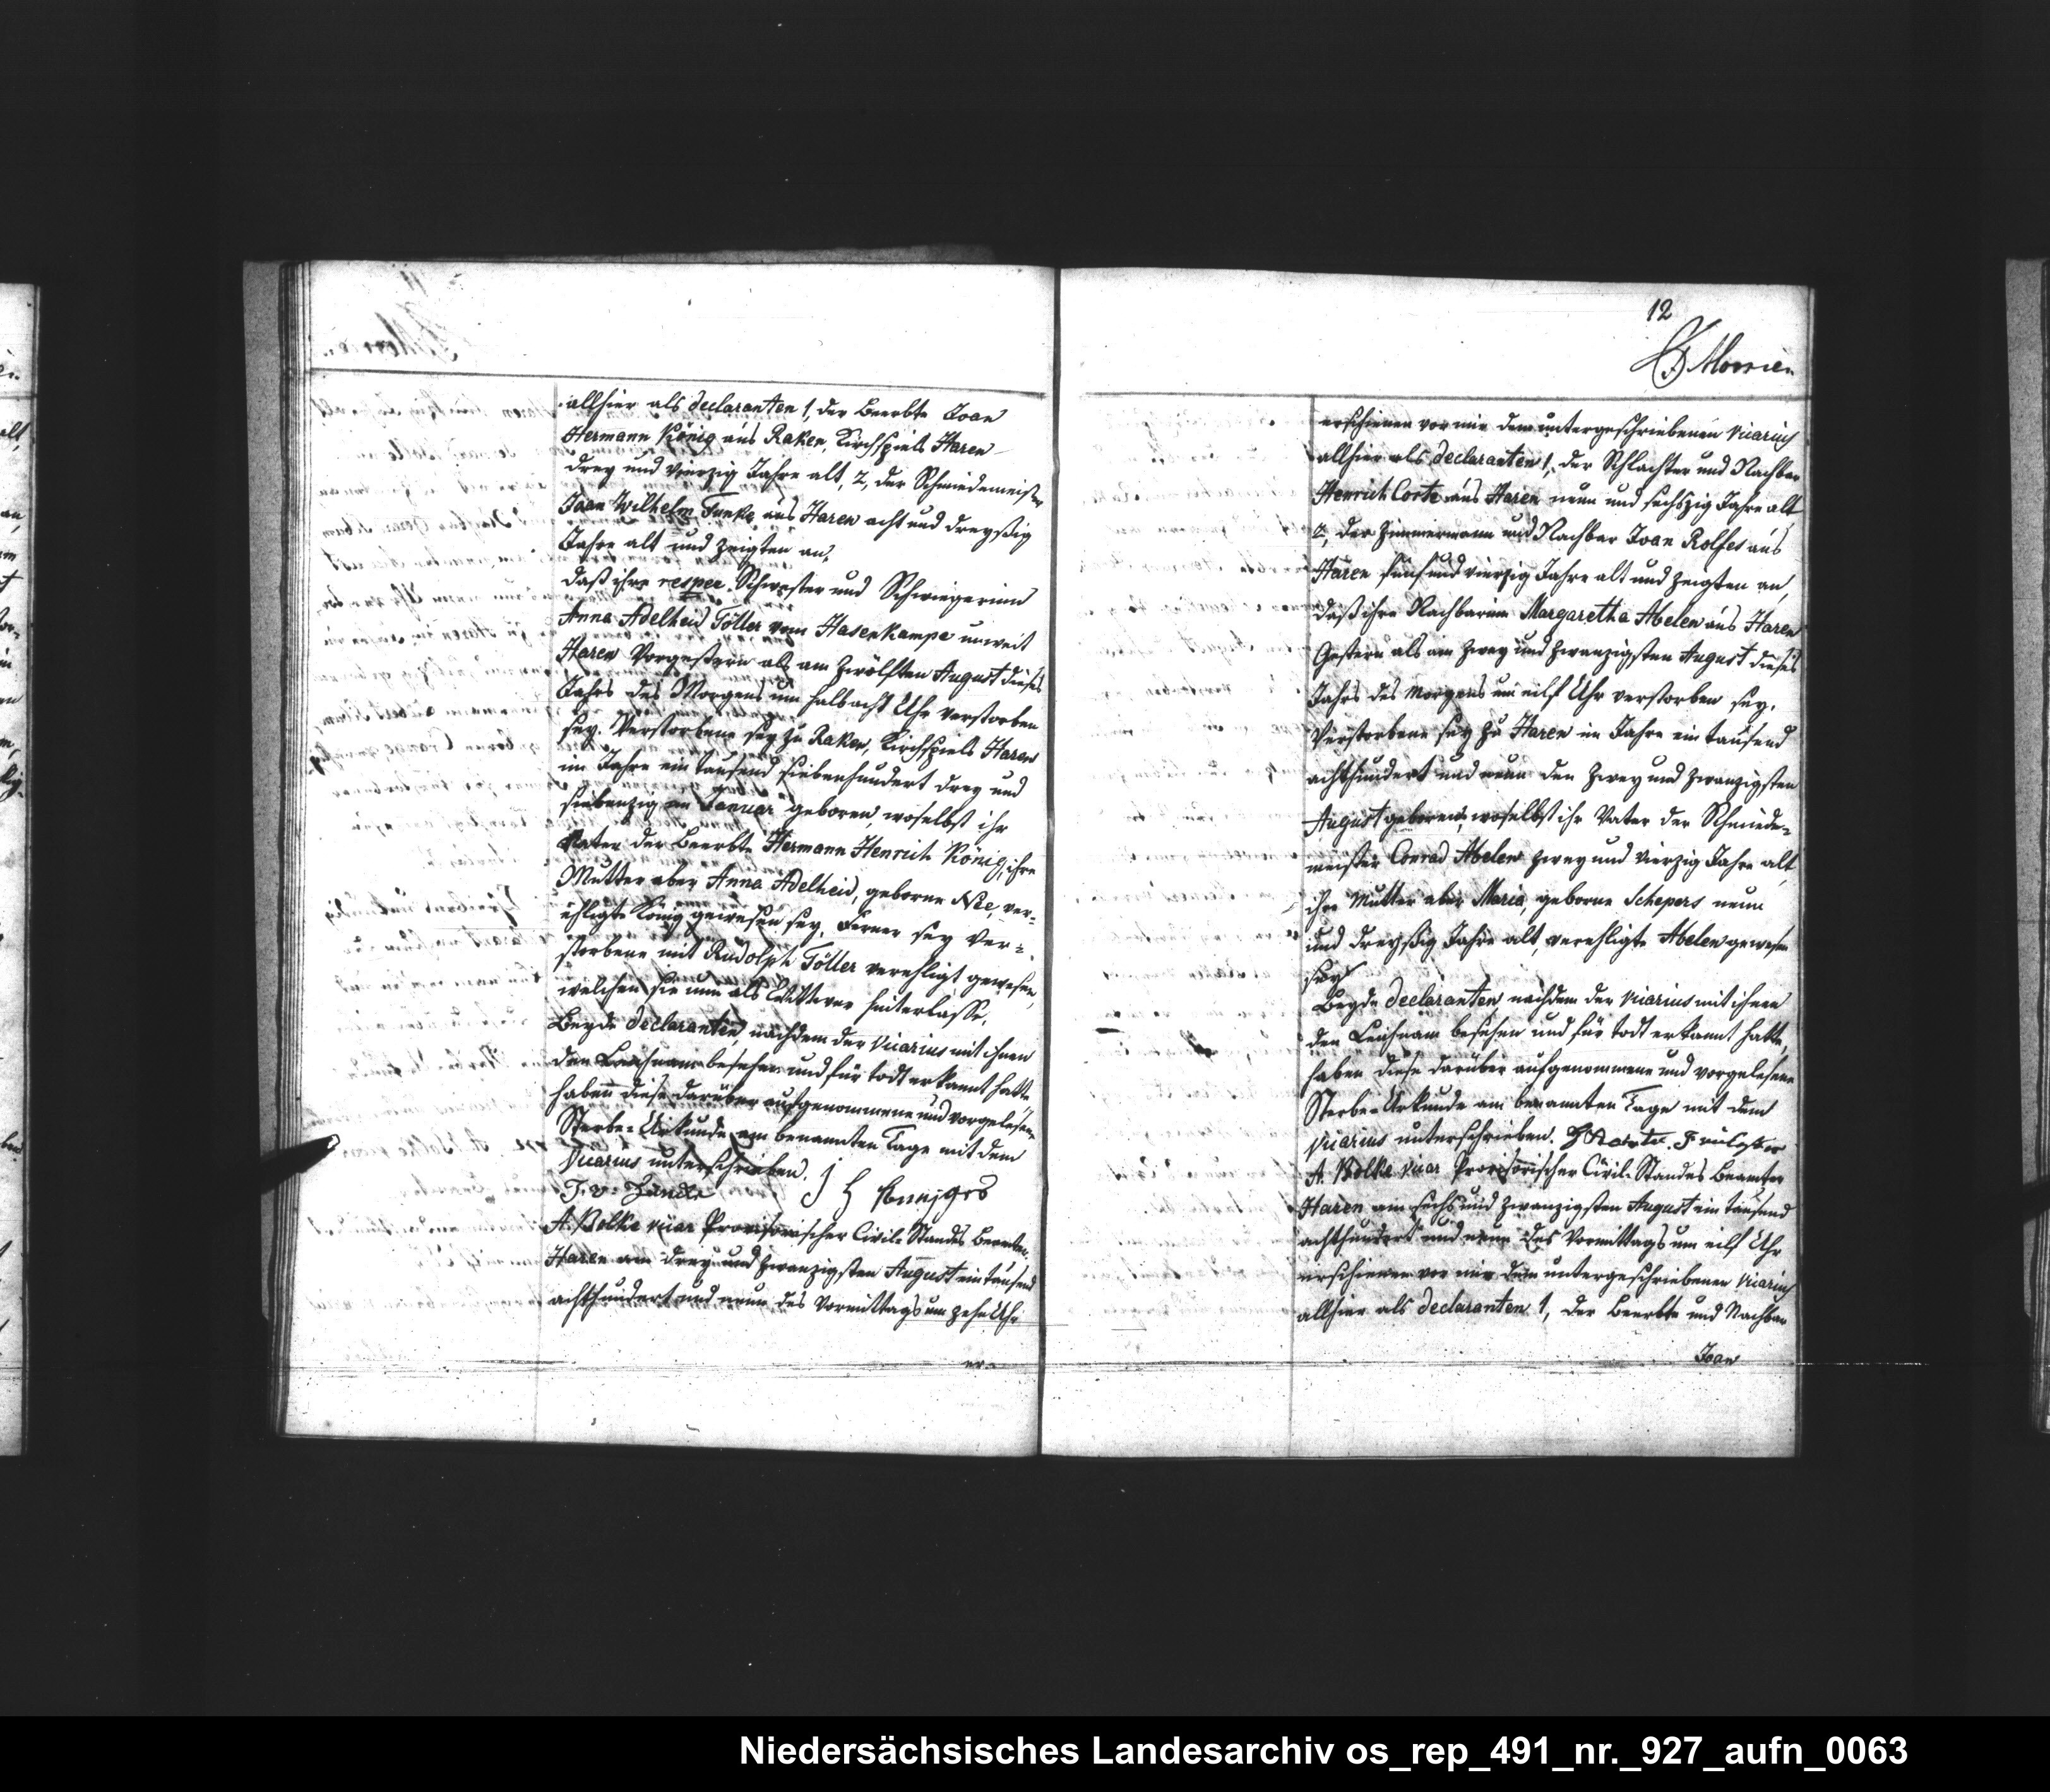 allhier als declaranten 1, der Beerbte Joan
Hermann König aus Raken, Kirchspiels Haren
drey und vierzig Jahre alt, 2, der Schmiedemeister
Joan Wilhelm Funke aus Haren acht und dreyßig
Jahre alt und zeigten an,
daß ihre respee. Schwester und Schwiegerinn
Anna Adelheid Töller vom Hasenkampe unweit
Haren Vorgestern als am zwölften August dieses
Jahrs des Morgens um halbacht Uhr verstorben
sey. Verstorbene sey zu Raken, Kirchspiels Haren
im Jahre ein tausend siebenhundert drey und
siebenzig im Januar geboren, woselbst ihr
Vater der Beerbte Hermann Henrich König, ihre
Mutter aber Anna Adelheid, geborne Nee, ver-
ehligte König gewesen sey. Ferner sey Ver-
storbene mit Rudolph Töller verehligt gewesen,
welchen sie nun als Wittwer hinterlasse.
Beyde declaranten, nachdem der vicarius mit ihnen
den Leichnam besehen und für todt erkannt hatte
haben diese darüber aufgenommene und vorgelesene
Sterbe-Urkunde am benannten Tage mit dem
Vicarius unterschrieben. J H
A. Bolke vicar Provisorischer Civil-Standes Beamter.
Haren am drey und zwanzigsten August ein tausend
achthundert und neun des Vormittags um zehn Uhr
er-
12
erschienen vor mir dem untergeschriebenen vicarius
allhier als declaranten 1, der Schlachter und Nachbar
Henrich Corte aus Haren neun und sechszig Jahre alt
2, der Zimmermann und Nachbar Joan Rolfes aus
Haren fünf und vierzig Jahre alt und zeigten an,
daß ihre Nachbarinn Margaretha Abelen aus Haren
Gestern als am zwey und zwanzigsten August dieses
Jahrs des Morgens um eilf Uhr verstorben sey.
Verstorbene sey zu Haren im Jahre ein tausend
achthundert und neun den zwey und zwanzigsten
August geboren, woselbst ihr Vater der Schmiede-
meister Conrad Abelen zwey und vierzig Jahre alt
ihre Mutter aber Maria, geborne Schepers neun
und dreyßig Jahre alt, verehligte Abelen gewesen
sey
Beyde declaranten, nachdem der vicarius mit ihnen
den Leichnam besehen und für todt erkannt hatte,
haben diese darüber aufgenommene und vorgelesene
Sterbe-Urkunde am benannten Tage mit dem
Vicarius unterschrieben.
A. Bolke vicar Provisorischer Civil-Standes Beamter
Haren am sechs und zwanzigsten August ein tausend
achthundert und neun des Vormittags um eilf Uhr
erschienen vor mir dem untergeschriebenen vicarius
allhier als declaranten 1, der Beerbte und Nachbar
Joan
Niedersächsisches Landesarchiv os_rep_491_nr._927_aufn_0063